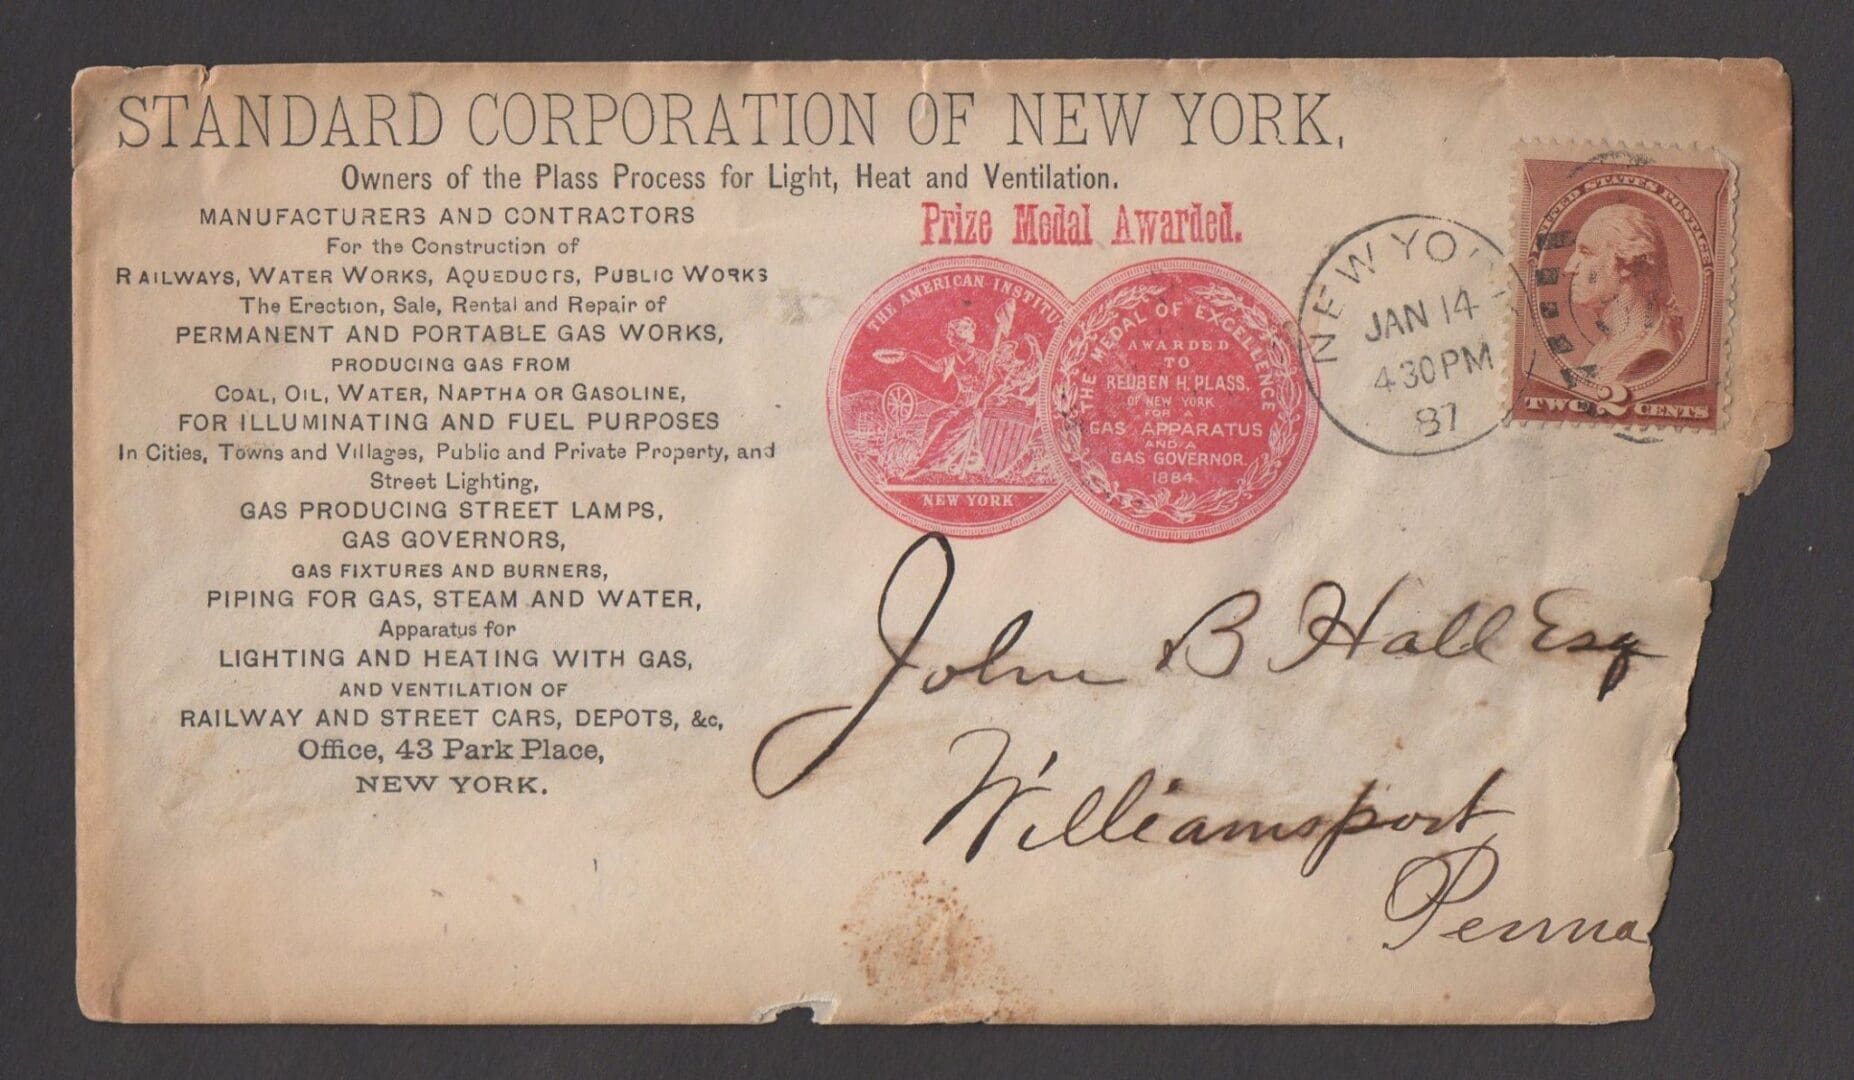 STANDARD CORPORATION OF NEW YORK,
Owners of the Plass Process for Light, Heat and Ventilation.
MANUFACTURERS AND CONTRACTORS
For the Construction of
RAILWAYS, WATER WORKS, AQUEDUCTS, PUBLIC WORKS
The Erection, Sale, Rental and Repair of
PERMANENT AND PORTABLE GAS WORKS,
PRODUCING GAS FROM
COAL, OIL, WATER, NAPTHA OR GASOLINE,
FOR ILLUMINATING AND FUEL PURPOSES
In Cities, Towns and Villages, Public and Private Property, and
Street Lighting,
GAS PRODUCING STREET LAMPS,
GAS GOVERNORS,
GAS FIXTURES AND BURNERS,
PIPING FOR GAS, STEAM AND WATER,
Apparatus for
LIGHTING AND HEATING WITH GAS,
AND VENTILATION OF
RAILWAY AND STREET CARS, DEPOTS, &c,
Office, 43 Park Place,
NEW YORK.
Prize Medal Awarded.
THE AMERICAN INSTITU
NEW YORK
THE MEDAL OF EXCELLENCE
AWARDED
TO
REUBEN H. PLASS,
OF NEW YORK
FOR A
GAS APPARATUS
AND A
GAS GOVERNOR.
1884
NEW YO
JAN 14
430PM
87
UNITED STATES POSTAGE
TWO 2 CENTS
John B Hall Esq
Williamsport
Penna